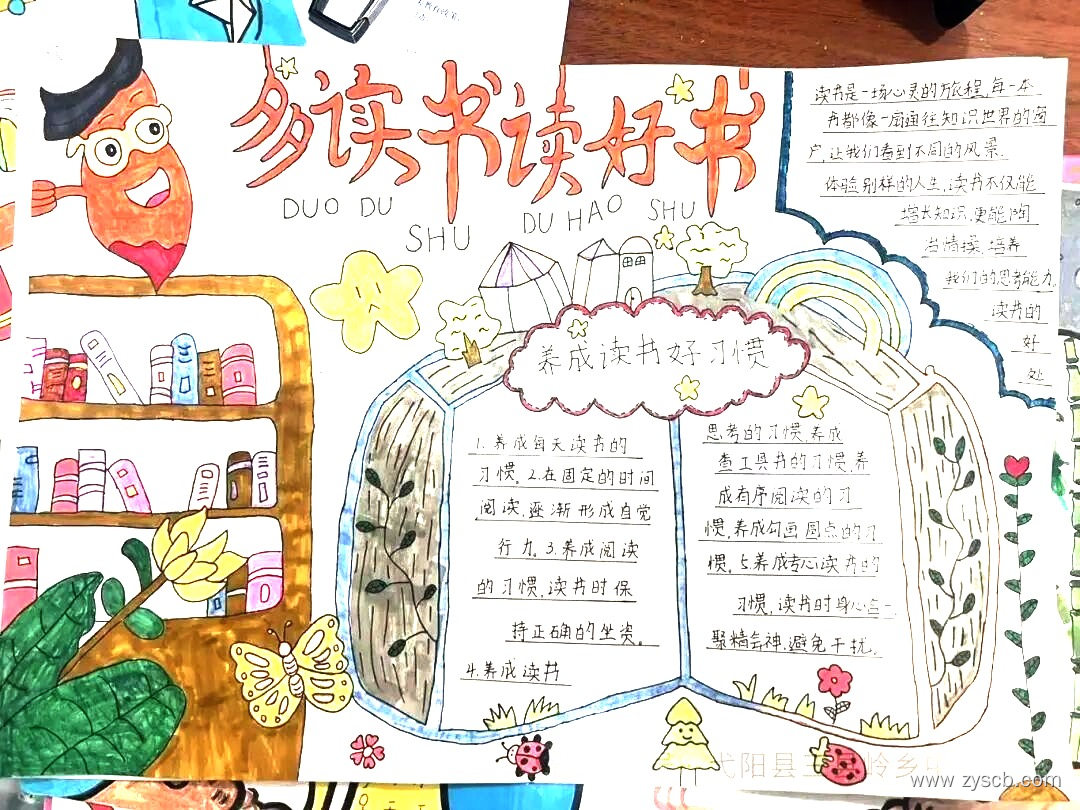 多读书读好书
DUO DU SHU DU HAO SHU
读书是一场心灵的旅程,每一本
书都像一扇通往知识世界的窗
户,让我们看到不同的风景.
体验别样的人生,读书不仅能
增长知识,更能陶
冶情操,培养
我们的思考能力.
读书的
好
处
养成读书好习惯
1.养成每天读书的
习惯, 2.在固定的时间
阅读,逐渐形成自觉
行为. 3.养成阅读
的习惯,读书时保
持正确的坐姿.
4.养成读书
思考的习惯,养成
查工具书的习惯,养
成有序阅读的习
惯,养成勾画圆点的习
惯, 5.养成专心读书的
习惯,读书时身心合一
聚精会神.避免干扰.
弋阳县 岭乡
www.zyscb.com